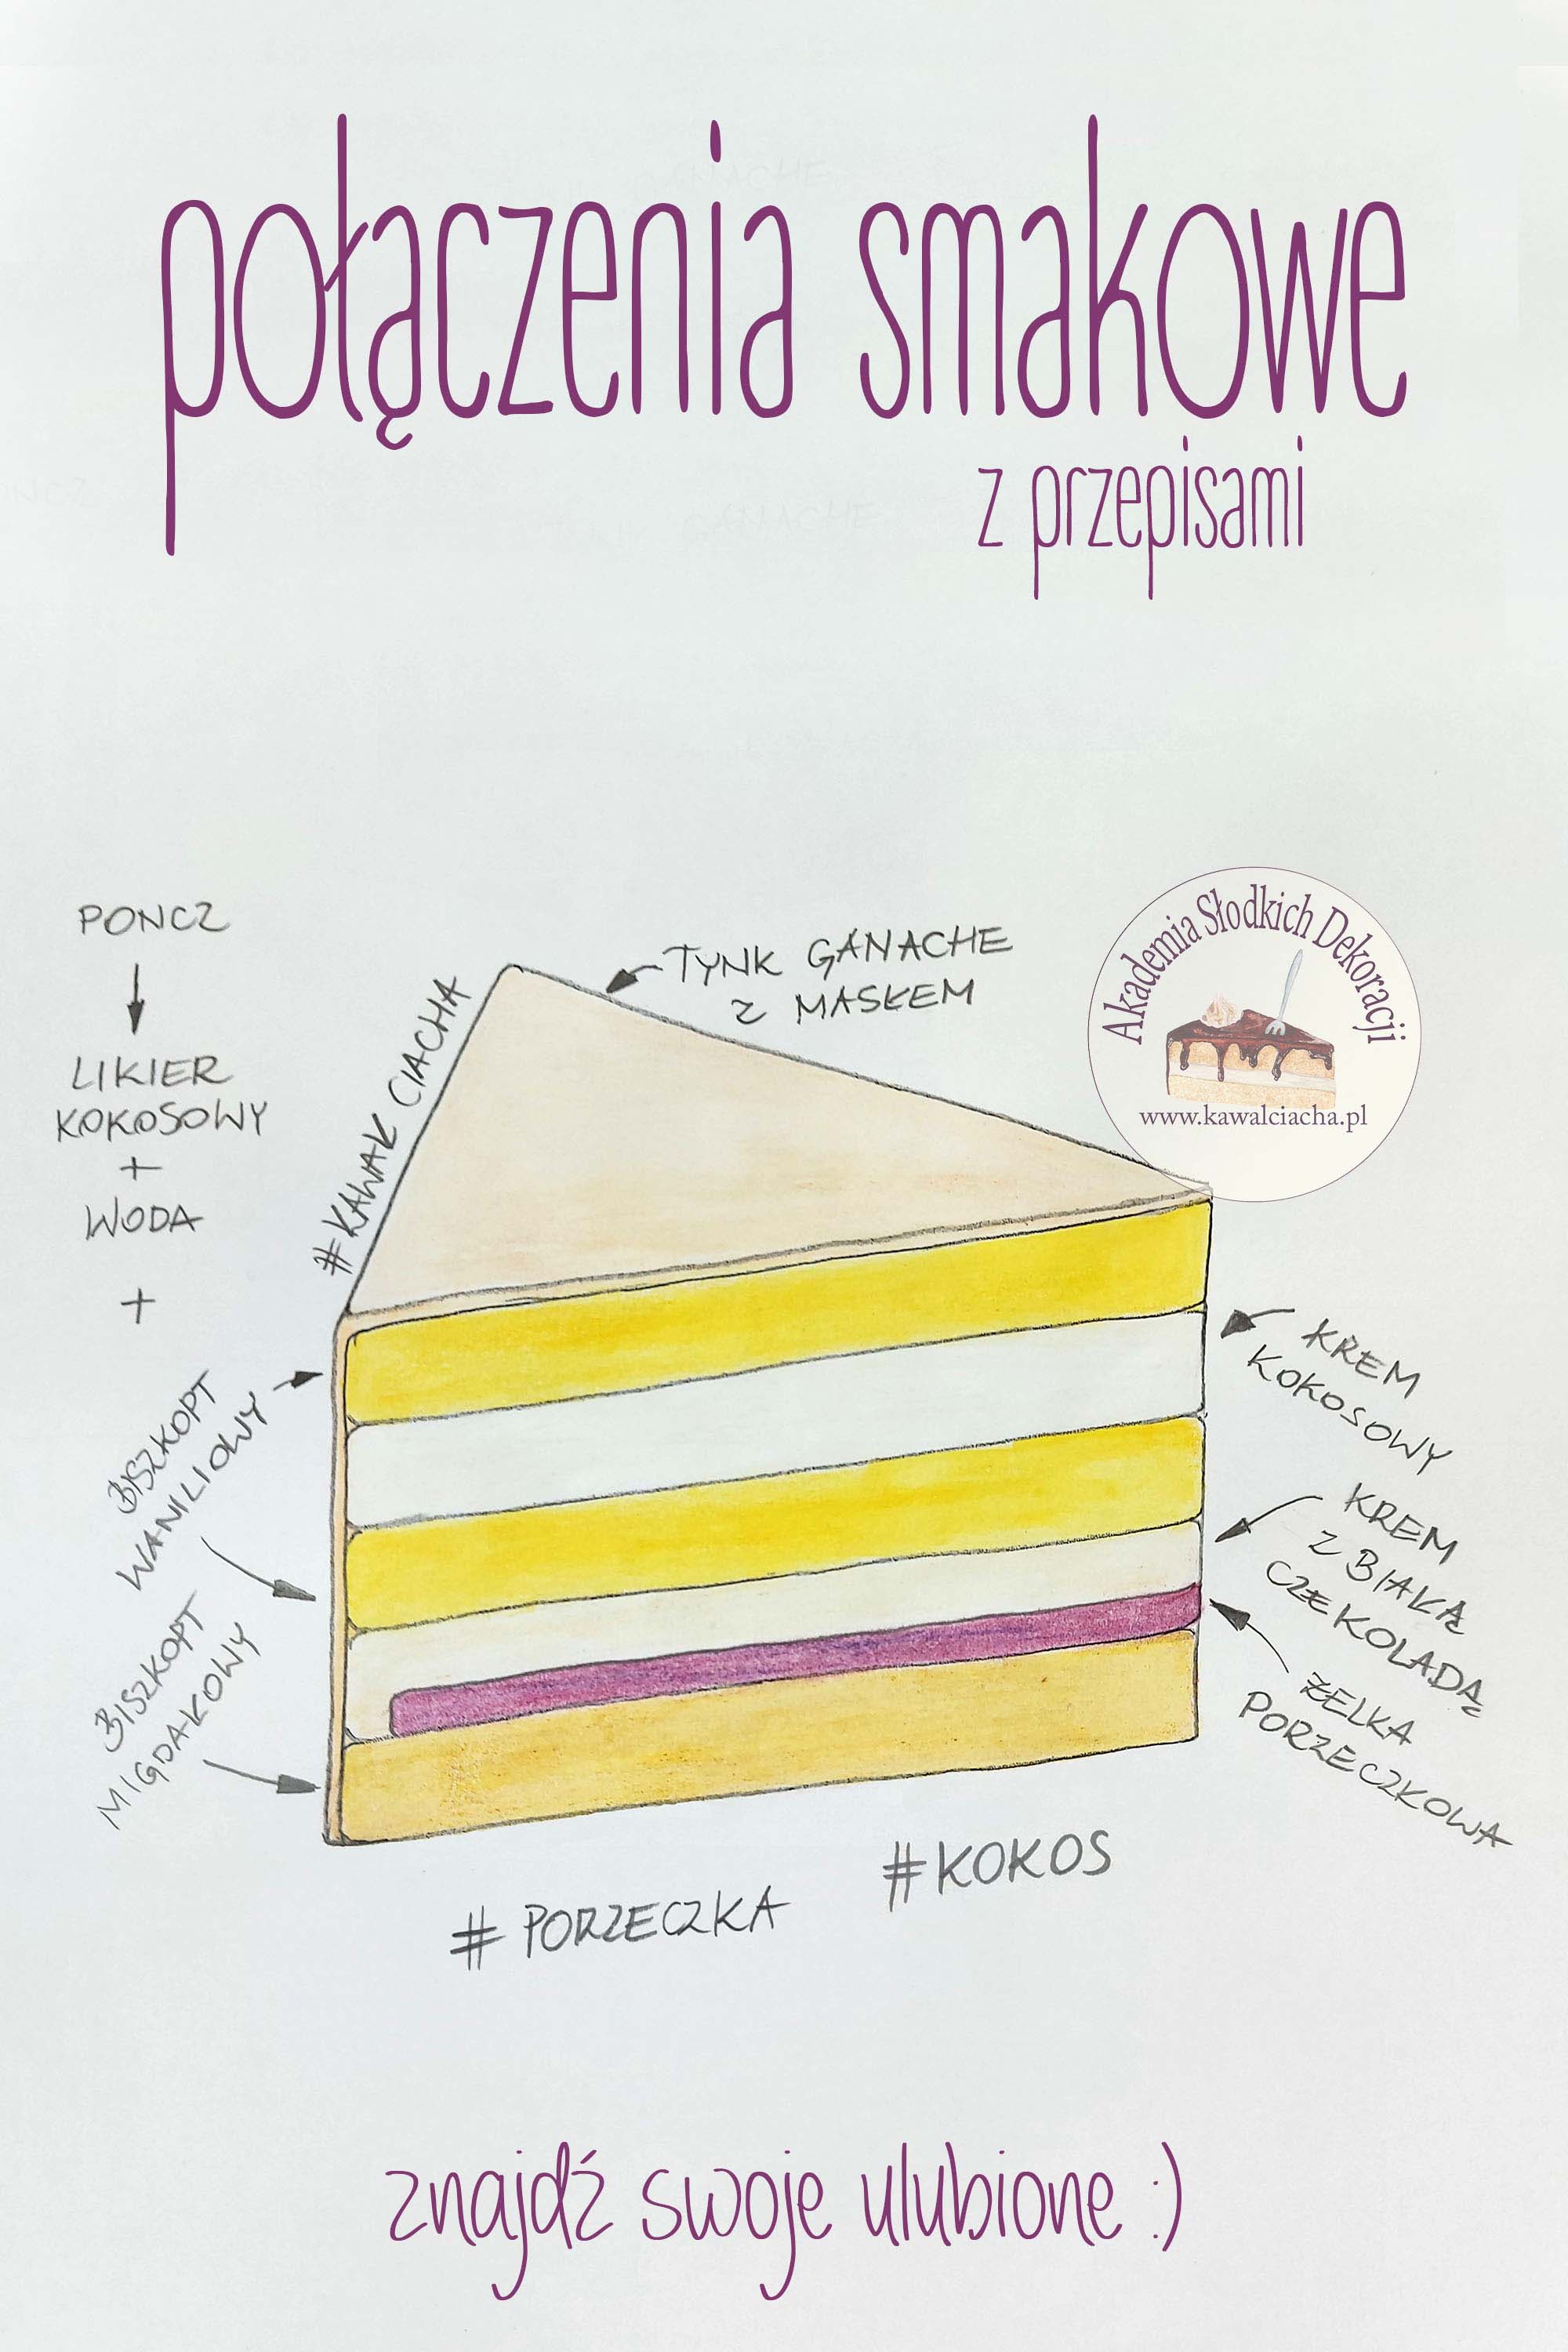 połączenia smakowe
z przepisami
PONCZ
LIKIER
KOKOSOWY
+
WODA
+
#KAWAŁ CIACHA
TYNK GANACHE
Z MASŁEM
Akademia Słodkich Dekoracji
www.kawalciacha.pl
BISZKOPT
WANILIOWY
BISZKOPT
MIGDAŁOWY
KREM
KOKOSOWY
KREM
Z BIAŁĄ
CZEKOLADĄ
ŻELKA
PORZECZKOWA
#KOKOS
# PORZECZKA
znajdź swoje ulubione :)